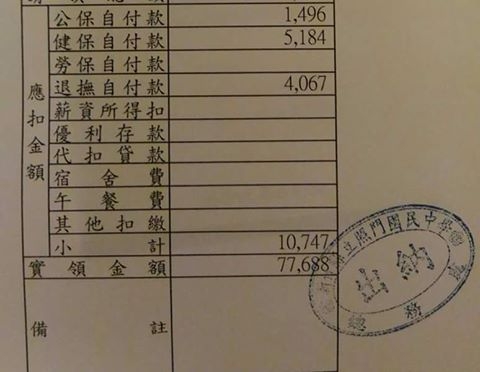 應扣金額
公保自付款 1,496
健保自付款 5,184
勞保自付款
退撫自付款 4,067
薪資所得扣
優利存款
代扣貸款
宿舍費
午餐費
其他扣繳
小計 10,747
實領金額 77,688
備註
出納